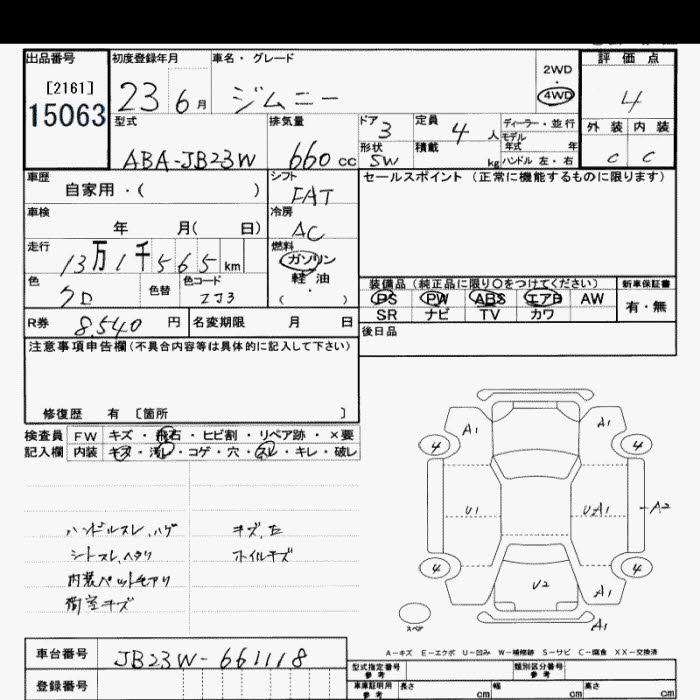 出品番号 初度登録年月 車名・グレード 評価点
[2161]
15063
23 6月 ジムニー
2WD
・
4WD
4
型式 排気量 ドア 定員 ディーラー・並行
ABA-JB23W 660cc 3 4人
モデル年式 年
形状 SW 積載 kg ハンドル 左・右
外装 内装
C C
車歴 シフト セールスポイント(正常に機能するものに限ります)
自家用・( ) FAT
車検 冷房
年 月( 日) AC
走行 燃料
13万1千565km ガソリン
軽油
・
( )
色 色替 色コード
クロ ZJ3
装備品(純正品に限り○をつけてください) 新車保証書
PS PW ABS エアB AW 有・無
SR ナビ TV カワ
R券 8540円 名変期限 月 日
後日品
注意事項申告欄(不具合内容等は具体的に記入して下さい)
修復歴 有 〔箇所 〕
検査員 FW キズ・飛石・ヒビ割・リペア跡・×要
記入欄 内装 キズ・汚レ・コゲ・穴・スレ・キレ・破レ
ハンドルスレ、ハゲ
シートスレ、ヘタリ
内装
荷室キズ
キズ、
ホイルキズ
A1 A1
4 4
U1 UA1 A2
4 4
U2 A1
スペア A1
A-キズ E-エクボ U-凹み W-補修跡 S-サビ C-腐食 XX-交換済
車台番号 JB23W-661118
登録番号
型式指定番号 参考 類別区分番号 参考
車庫証明用 参考 長さ cm 幅 cm 高さ cm